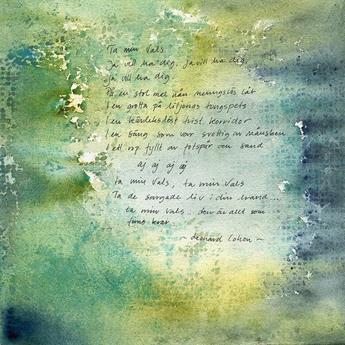 Ta min vals
Ja vill ha dig, ja vill ha dig,
ja vill ha dig
På en stol med nån meningslös låt
I en grotta på liljans tungspets
I en kärlekslöst trist korridor
I en säng som var svettig av månsken
I ett rop fyllt av fotspår och sand
aj aj aj aj
ta min vals, ta min vals
Ta de sargade liv i din hand...
ta min vals. den är allt som
finns kvar
~ Leonard Cohen ~